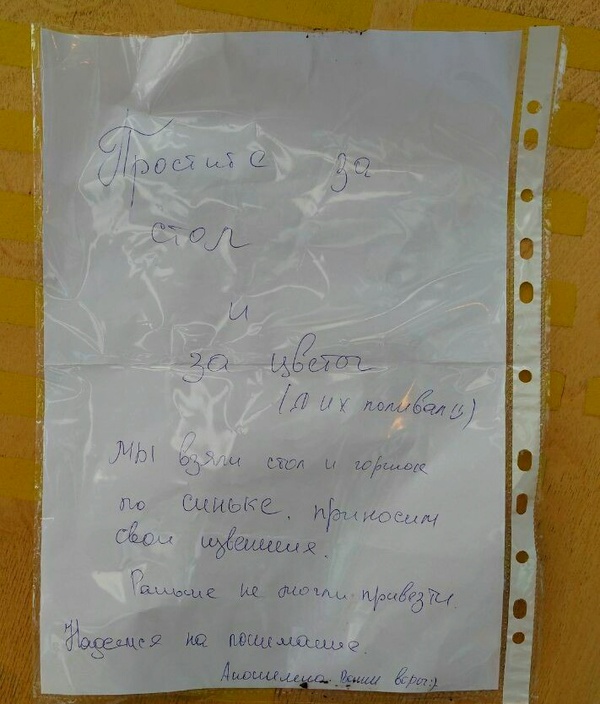 Простите за
стол
и
за цветок
(Я их поливал :))
Мы взяли стол и горшок
по синьке. приносим
свои извенения.
Раньше не могли привезти.
Надеемся на понимание.
Ваши воры:)